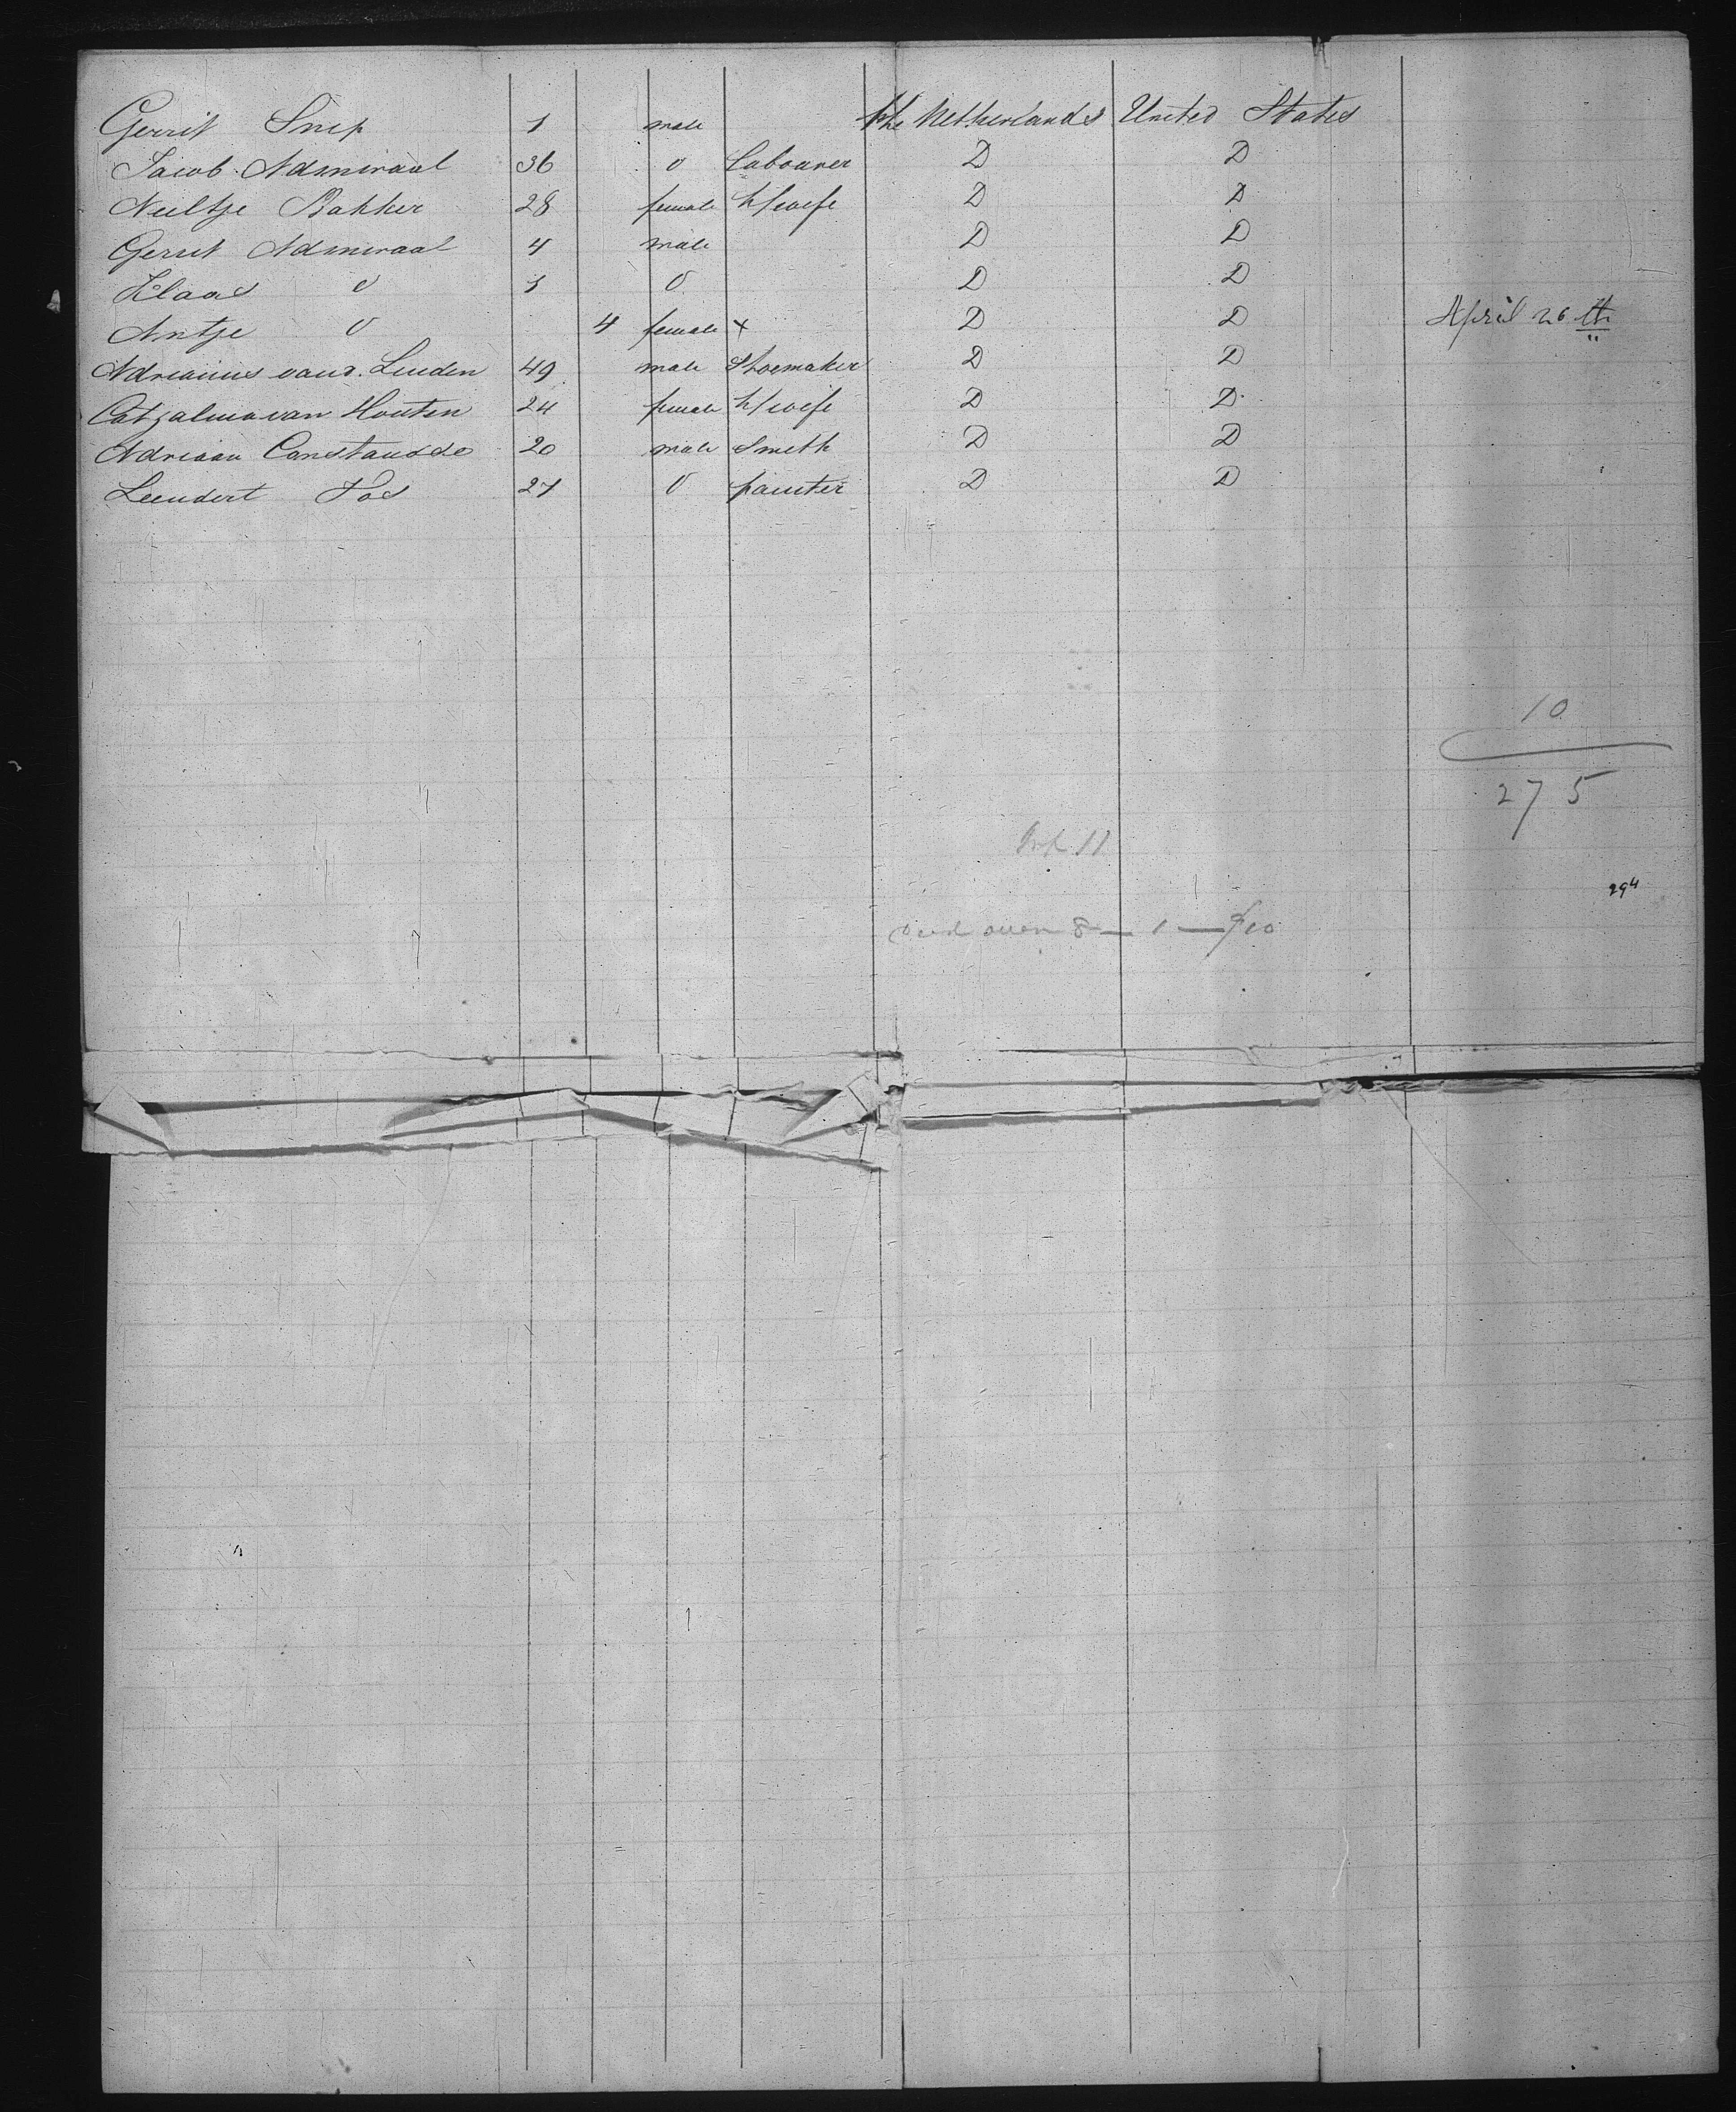 Gerrit Snip 1 male the Netherlands United States
Jacob Admiraal 36 o Labourer D D
Neeltje Bakker 28 female h/wife D D
Gerrit Admiraal 4 male D D
Klaas o 1 o D D
Antje o 4 female x D D April 26 th
Adrianus van d. Linden 49 male Shoemaker D D
van Houten 24 female h/wife D D
Adriaan Constandse 20 male Smith D D
Leendert Vos 27 o painter D D
10
275
Inf 11
294
over 8 — 1 — 10